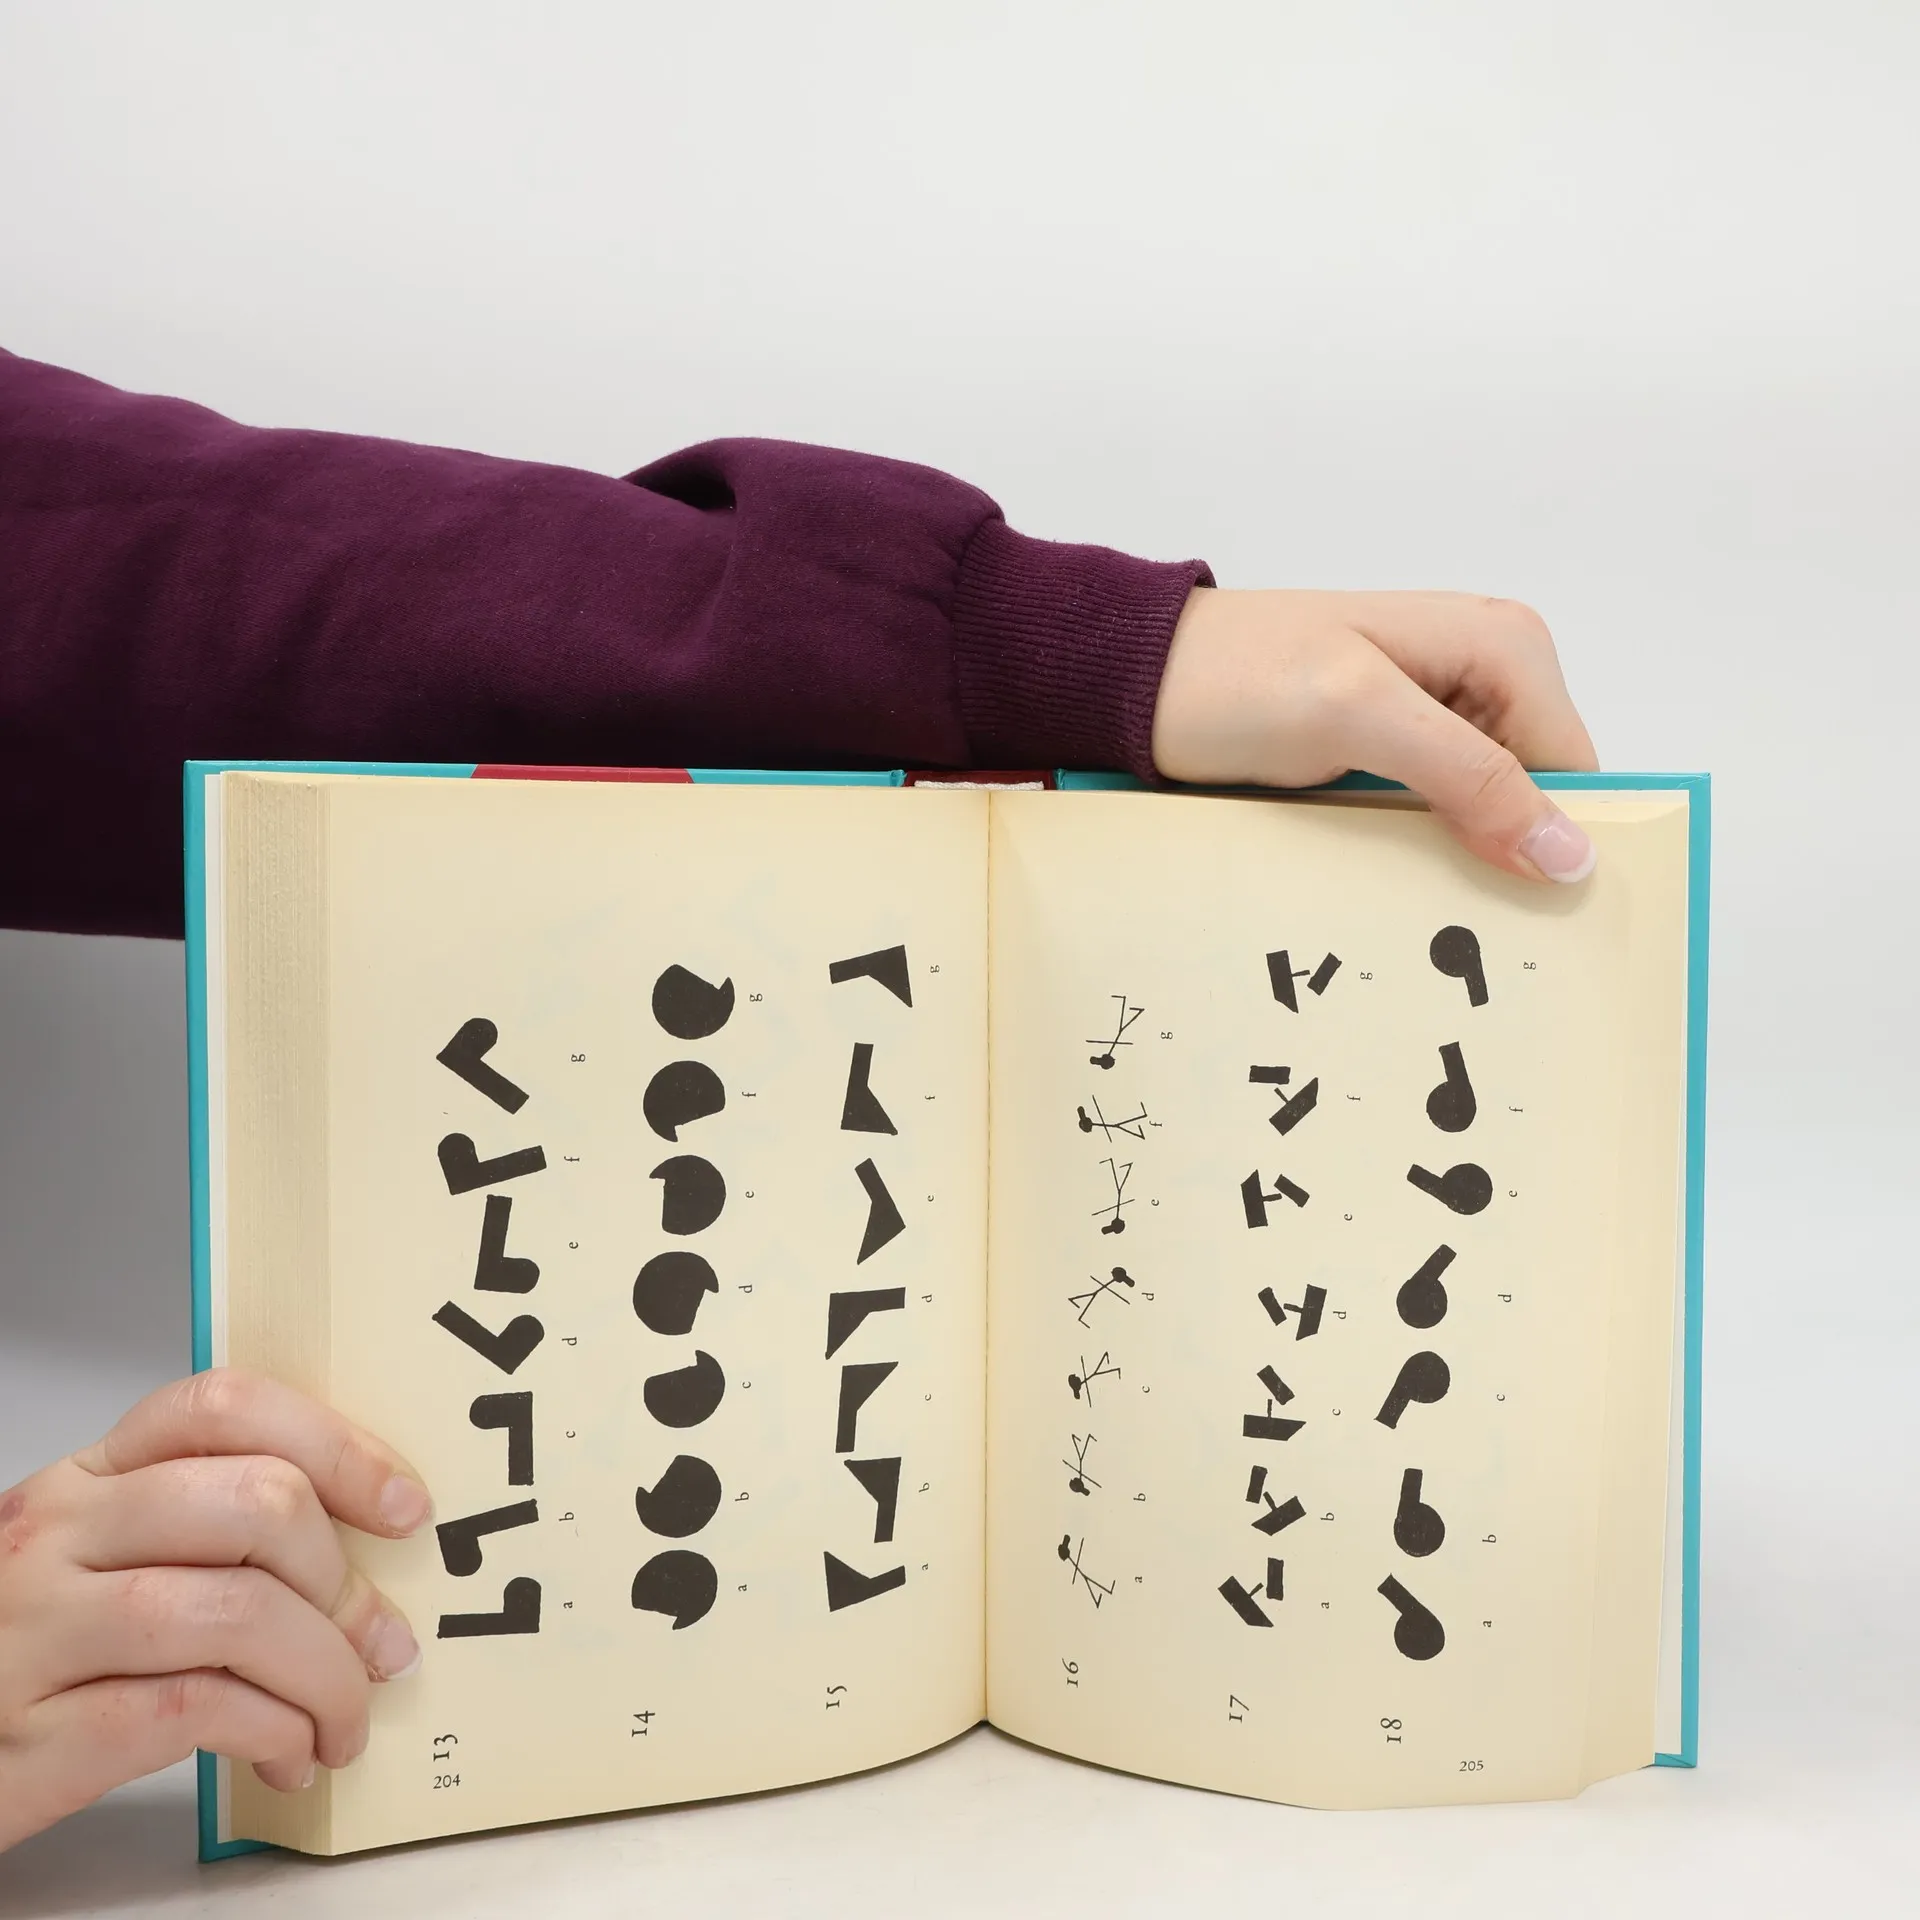 13
a b c d e f g
14
a b c d e f g
15
a b c d e f g
204
16
a b c d e f g
17
a b c d e f g
18
a b c d e f g
205